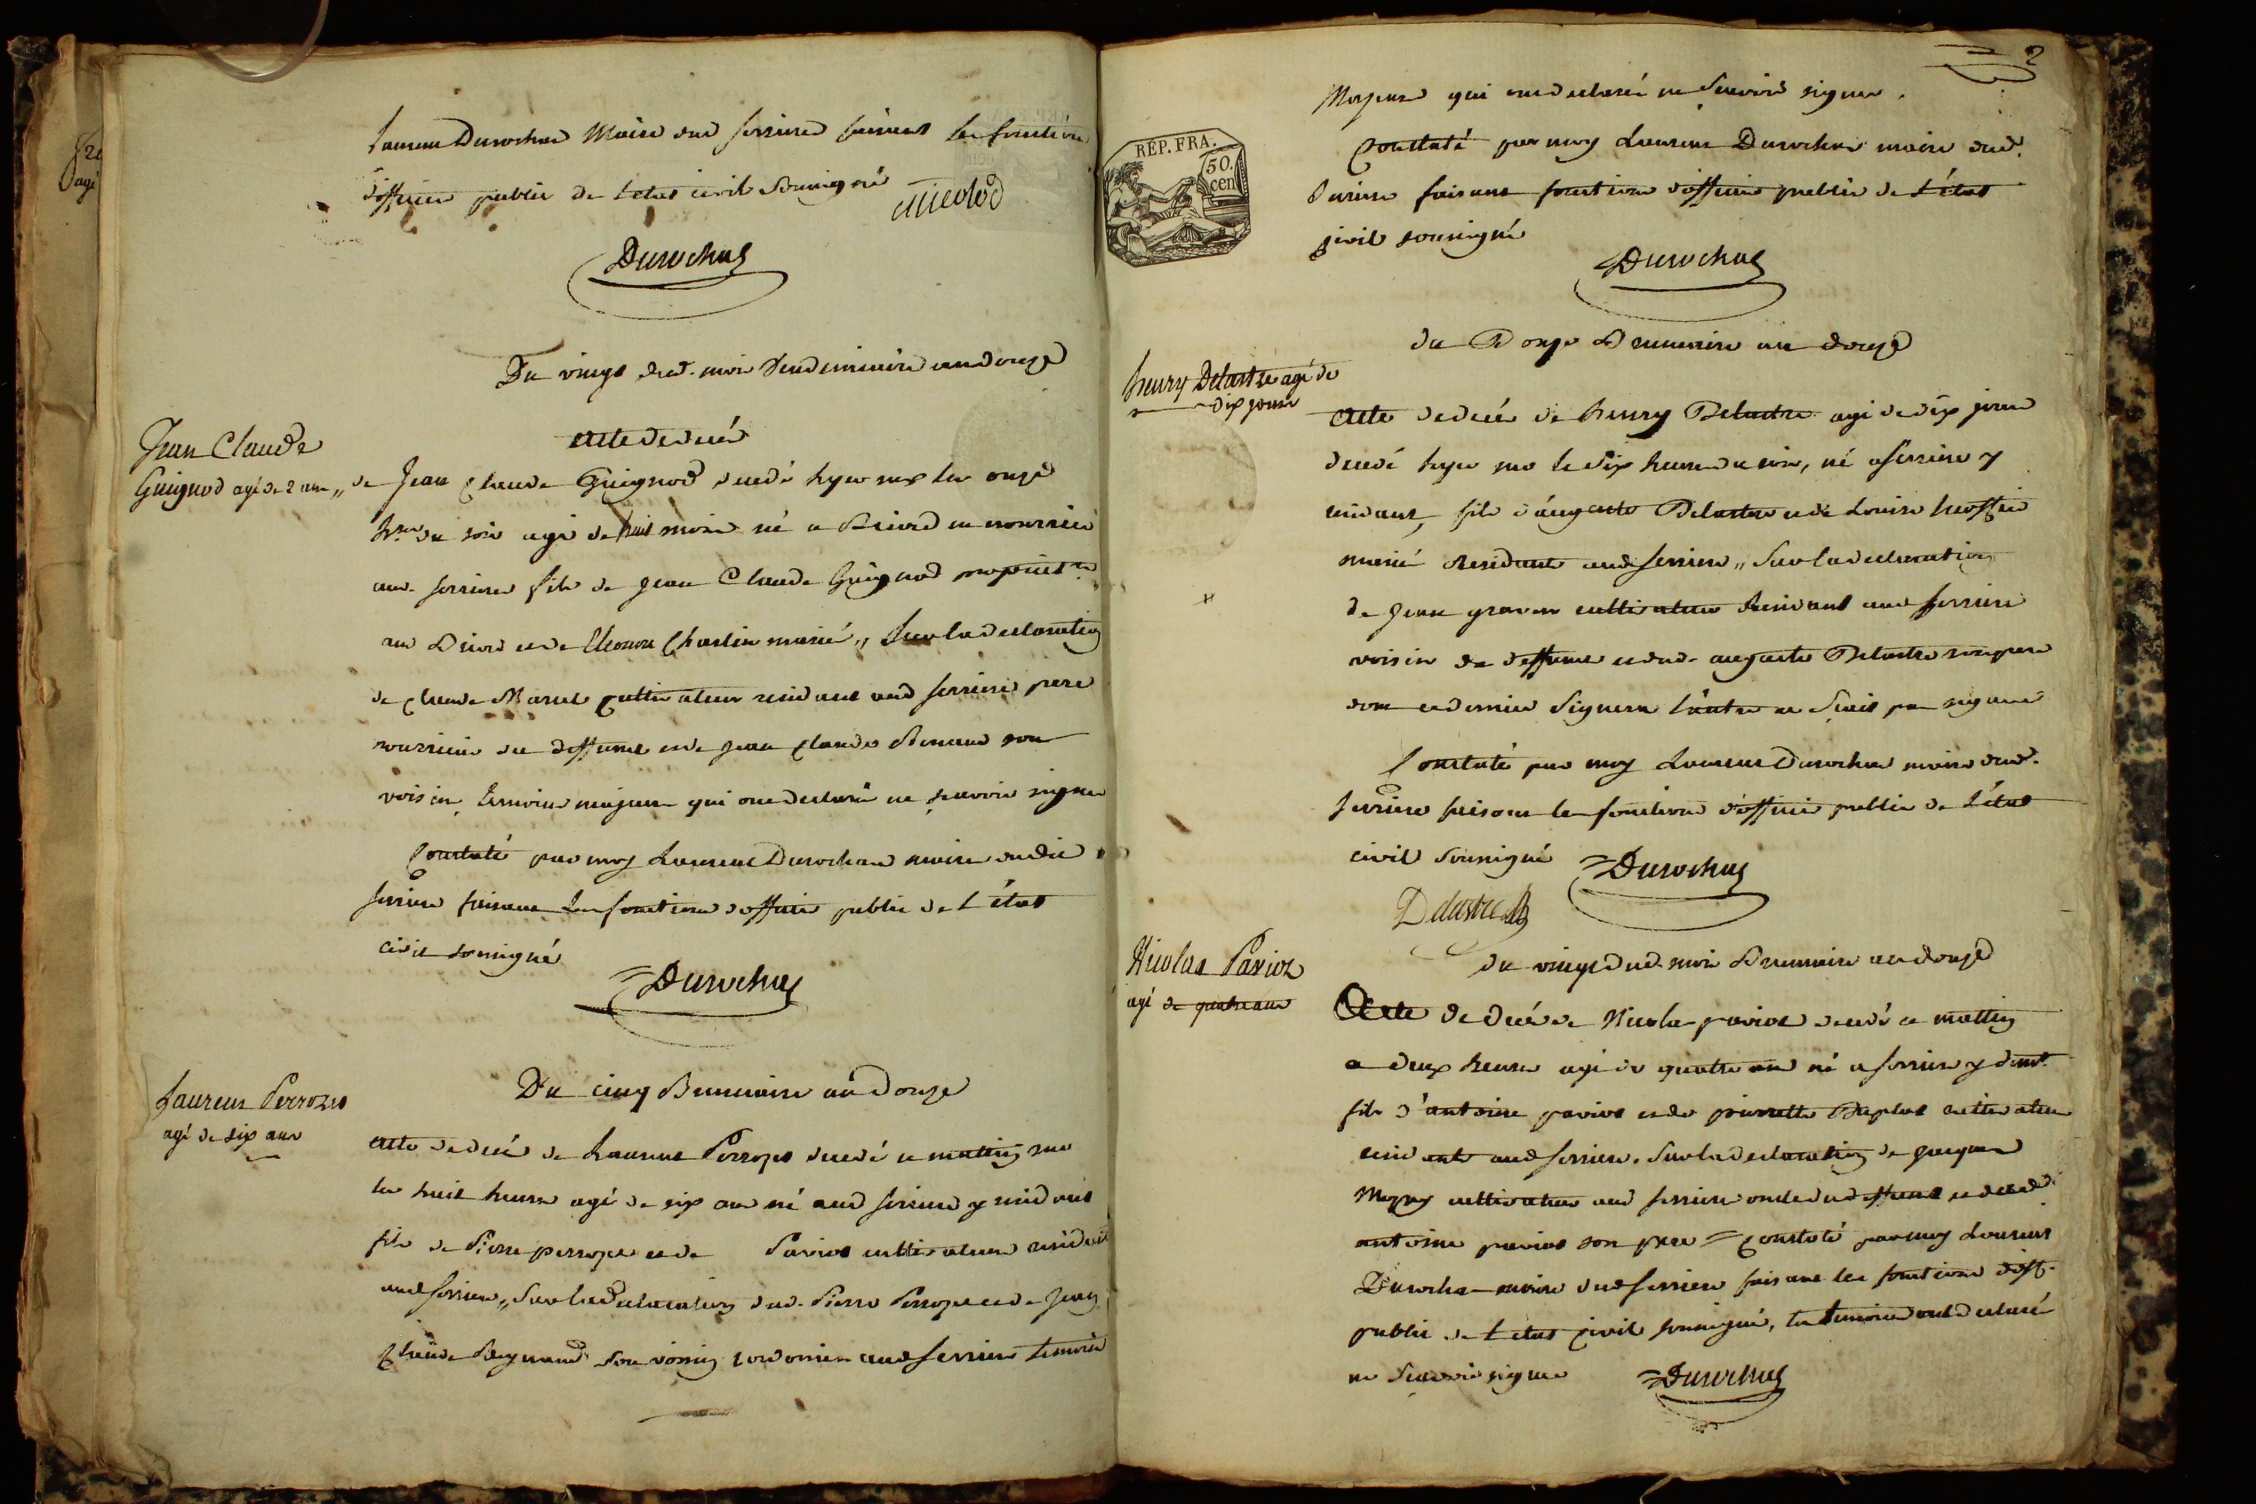 Laurent Durochat Maire dud serrieres faisant les fonctions
d'officier public de letat civil soussigné
Durochat
Du vingt dud. mois Vendemiaire an douze
Jean Claude
Guignod agé de 2 ans
acte de decés
de Jean Claude Guignod decedé hyer sur les onze
hres du soir agé de huit mois né a Briord en nourrice
aud. serrieres fils de Jean Claude Guignod propriet.re
aud Briord et de Eleonore Charlin marié,, Sur la declaration
de Claude Marcel cultivateur residant aud serriere pere
nourricier du deffunt et de Jean Claude son
voisin temoins majeurs qui ont declaré ne scavoir signer
Constaté par moy Laurent Durochat maire dudit
serriere faisant les fonctions d'officier public de L'état
civil soussigné
Durochat
Laurent Perrozet
agé de six ans
Du cinq Brumaire an Douze
acte de decé de Laurent Perrozet decedé ce mattin sur
les huit heures agé de six ans né aud serriere y residant
fils de Pierre perrozet et de Pariot cultivateurs residents
aud serriere,, Sur la declaration dud. Pierre Perrozet et de Jean
Claude Reynaud son voisin cordonier aud serriere temoins
2
REP. FRA.
50.
cen
Majeurs qui ont declaré ne scavoir signer.
Constaté par moy Laurent Durochat maire dud.
Serriere faisant fonctions d'officier public de L'état
civil soussigné
Durochat
du Douze Brumaire an douze
henry Delastre agé de
dix jours
Acte de decés de henry Delastre agé de dix jours
decedé hyer sur le six heures du soir, né a serriere y
residant, fils d'auguste Delastre et de Louise
marié residants aud serriere,, Sur la declaration
de Jean cultivateur residant aud serriere
voisin du deffunt et dud. auguste Delastre son pere
dont ce dernier signera L'autre ne sçait pas signer
Constaté par moy Laurent Durochat maire dud.
serriere faisant les fonctions d'officier public de L'état
civil soussigné
Durochat
Delastre
Nicolas Pariot
agé de quatre ans
du vingt dud. mois Brumaire an douze
Acte de decés de Nicolas pariot decedé ce mattin
a deux heures agé de quatre ans né a serriere y demt.
fils d'antoine pariot et de pierrette cultivateurs
residants aud serriere. Sur la declaration de jacques
cultivateur aud serriere oncle du deffunt et dud.
antoine pariot son pere = constaté par moy Laurent
Durochat maire dud serriere faisant les fonctions d'off.
public de L'etat civil soussigné, les temoins ont declaré
ne scavoir signer
Durochat